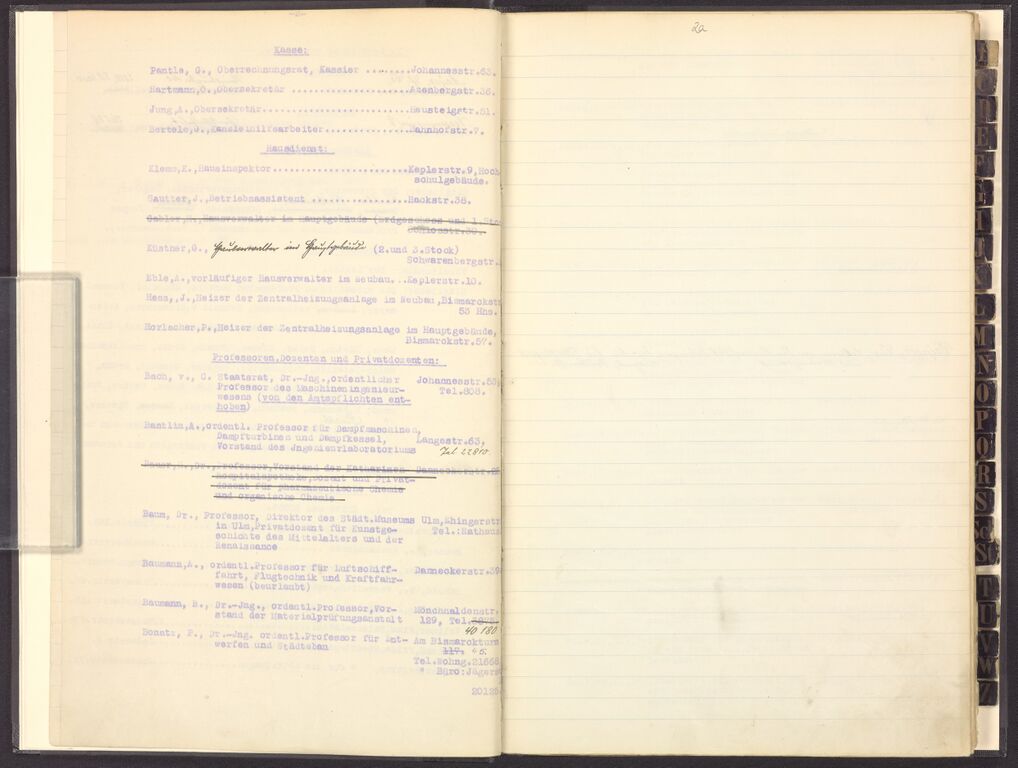 2a
Kasse:
Pantle, G., Oberrechnungsrat, Kassier ........Johannesstr.63.
Hartmann,O.,Obersekretär .....................Azenbergstr.36.
Jung,A.,Obersekretär..........................Hausteigstr.51.
Bertele,J.,Kanzleihilfsarbeiter...............Bahnhofstr.7.
Hausdienst:
Klemm,K.,Hausinspektor........................Keplerstr.9,Hoch
schulgebäude.
Gautter,J.,Betriebsassistent .................Hackstr.38.
Gabler,H.,Hausverwalter im Hauptgebäude (Erdgeschoss und 1.Sto
Schlosstr.30.
Küstner,G., Hausverwalter im Hauptgebäude (2.und 3.Stock)
Schwarenbergstr.
Eble,A.,vorläufiger Hausverwalter im Neubau...Keplerstr.10.
Hess,,J.,Heizer der Zentralheizungsanlage im Neubau,Bismarckstr
53 Hhs.
Horlacher,P.,Heizer der Zentralheizungsanlage im Hauptgebäude,
Bismarckstr.57.
Professoren,Dozenten und Privatdozenten:
Bach, v., C. Staatsrat, Dr.-Jng.,ordentlicher Johannesstr.53,
Professor des Maschineningenieur- Tel.808.
wesens (von den Amtspflichten ent-
hoben)
Bantlin,A.,ordentl. Professor für Dampfmaschinen,
Dampfturbinen und Dampfkessel, Langestr.63,
Vorstand des Jngenieurlaboratoriums Tel 22810
Bauer, Dr.,Professor,Vorstand der Katharinen- Danneckerstr.
hospitalapotheke,Dozent und Privat-
dozent für pharmazeutische Chemie
und organische Chemie
Baum, Dr., Professor, Direktor des Städt.Museums Ulm,Ehingerstr
in Ulm,Privatdozent für Kunstge- Tel.:Rathaus
schichte des Mittelalters und der
Renaissance
Baumann,A., ordentl.Professor für Luftschiff- Danneckerstr.39
fahrt, Flugtechnik und Kraftfahr-
wesen (beurlaubt)
Baumann, R., Dr.-Jng., ordentl.Professor,Vor- Mönchhaldenstr.
stand der Materialprüfungsanstalt 129, Tel.
40180
Bonatz, P., Dr.-Jng. ordentl.Professor für Ent- Am Bismarckturm
werfen und Städtebau 117. 45.
Tel.Wohng.21668
" Büro:Jägers
20125
F
G
J
K
L
M
N
O
P
Q
R
S
Sch
St
T
U
V
W
Z